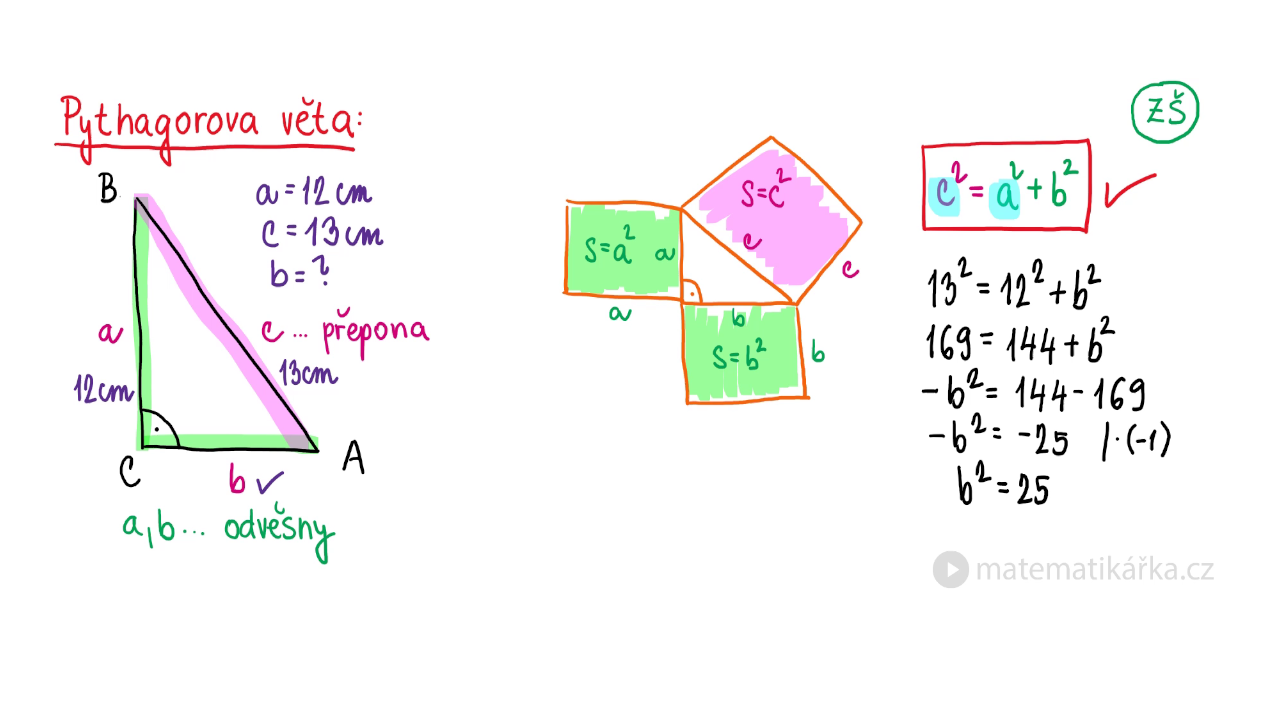 Pythagorova věta:
B
a = 12 cm
c = 13 cm
b = ?
c ... přepona
a
13cm
12cm
C
b ✓
A
a, b ... odvěsny
S = c²
S = a²
a
c
c
a
b
S = b²
b
ZŠ
c² = a² + b² ✓
13² = 12² + b²
169 = 144 + b²
-b² = 144 - 169
-b² = -25 / · (-1)
b² = 25
matematikářka.cz